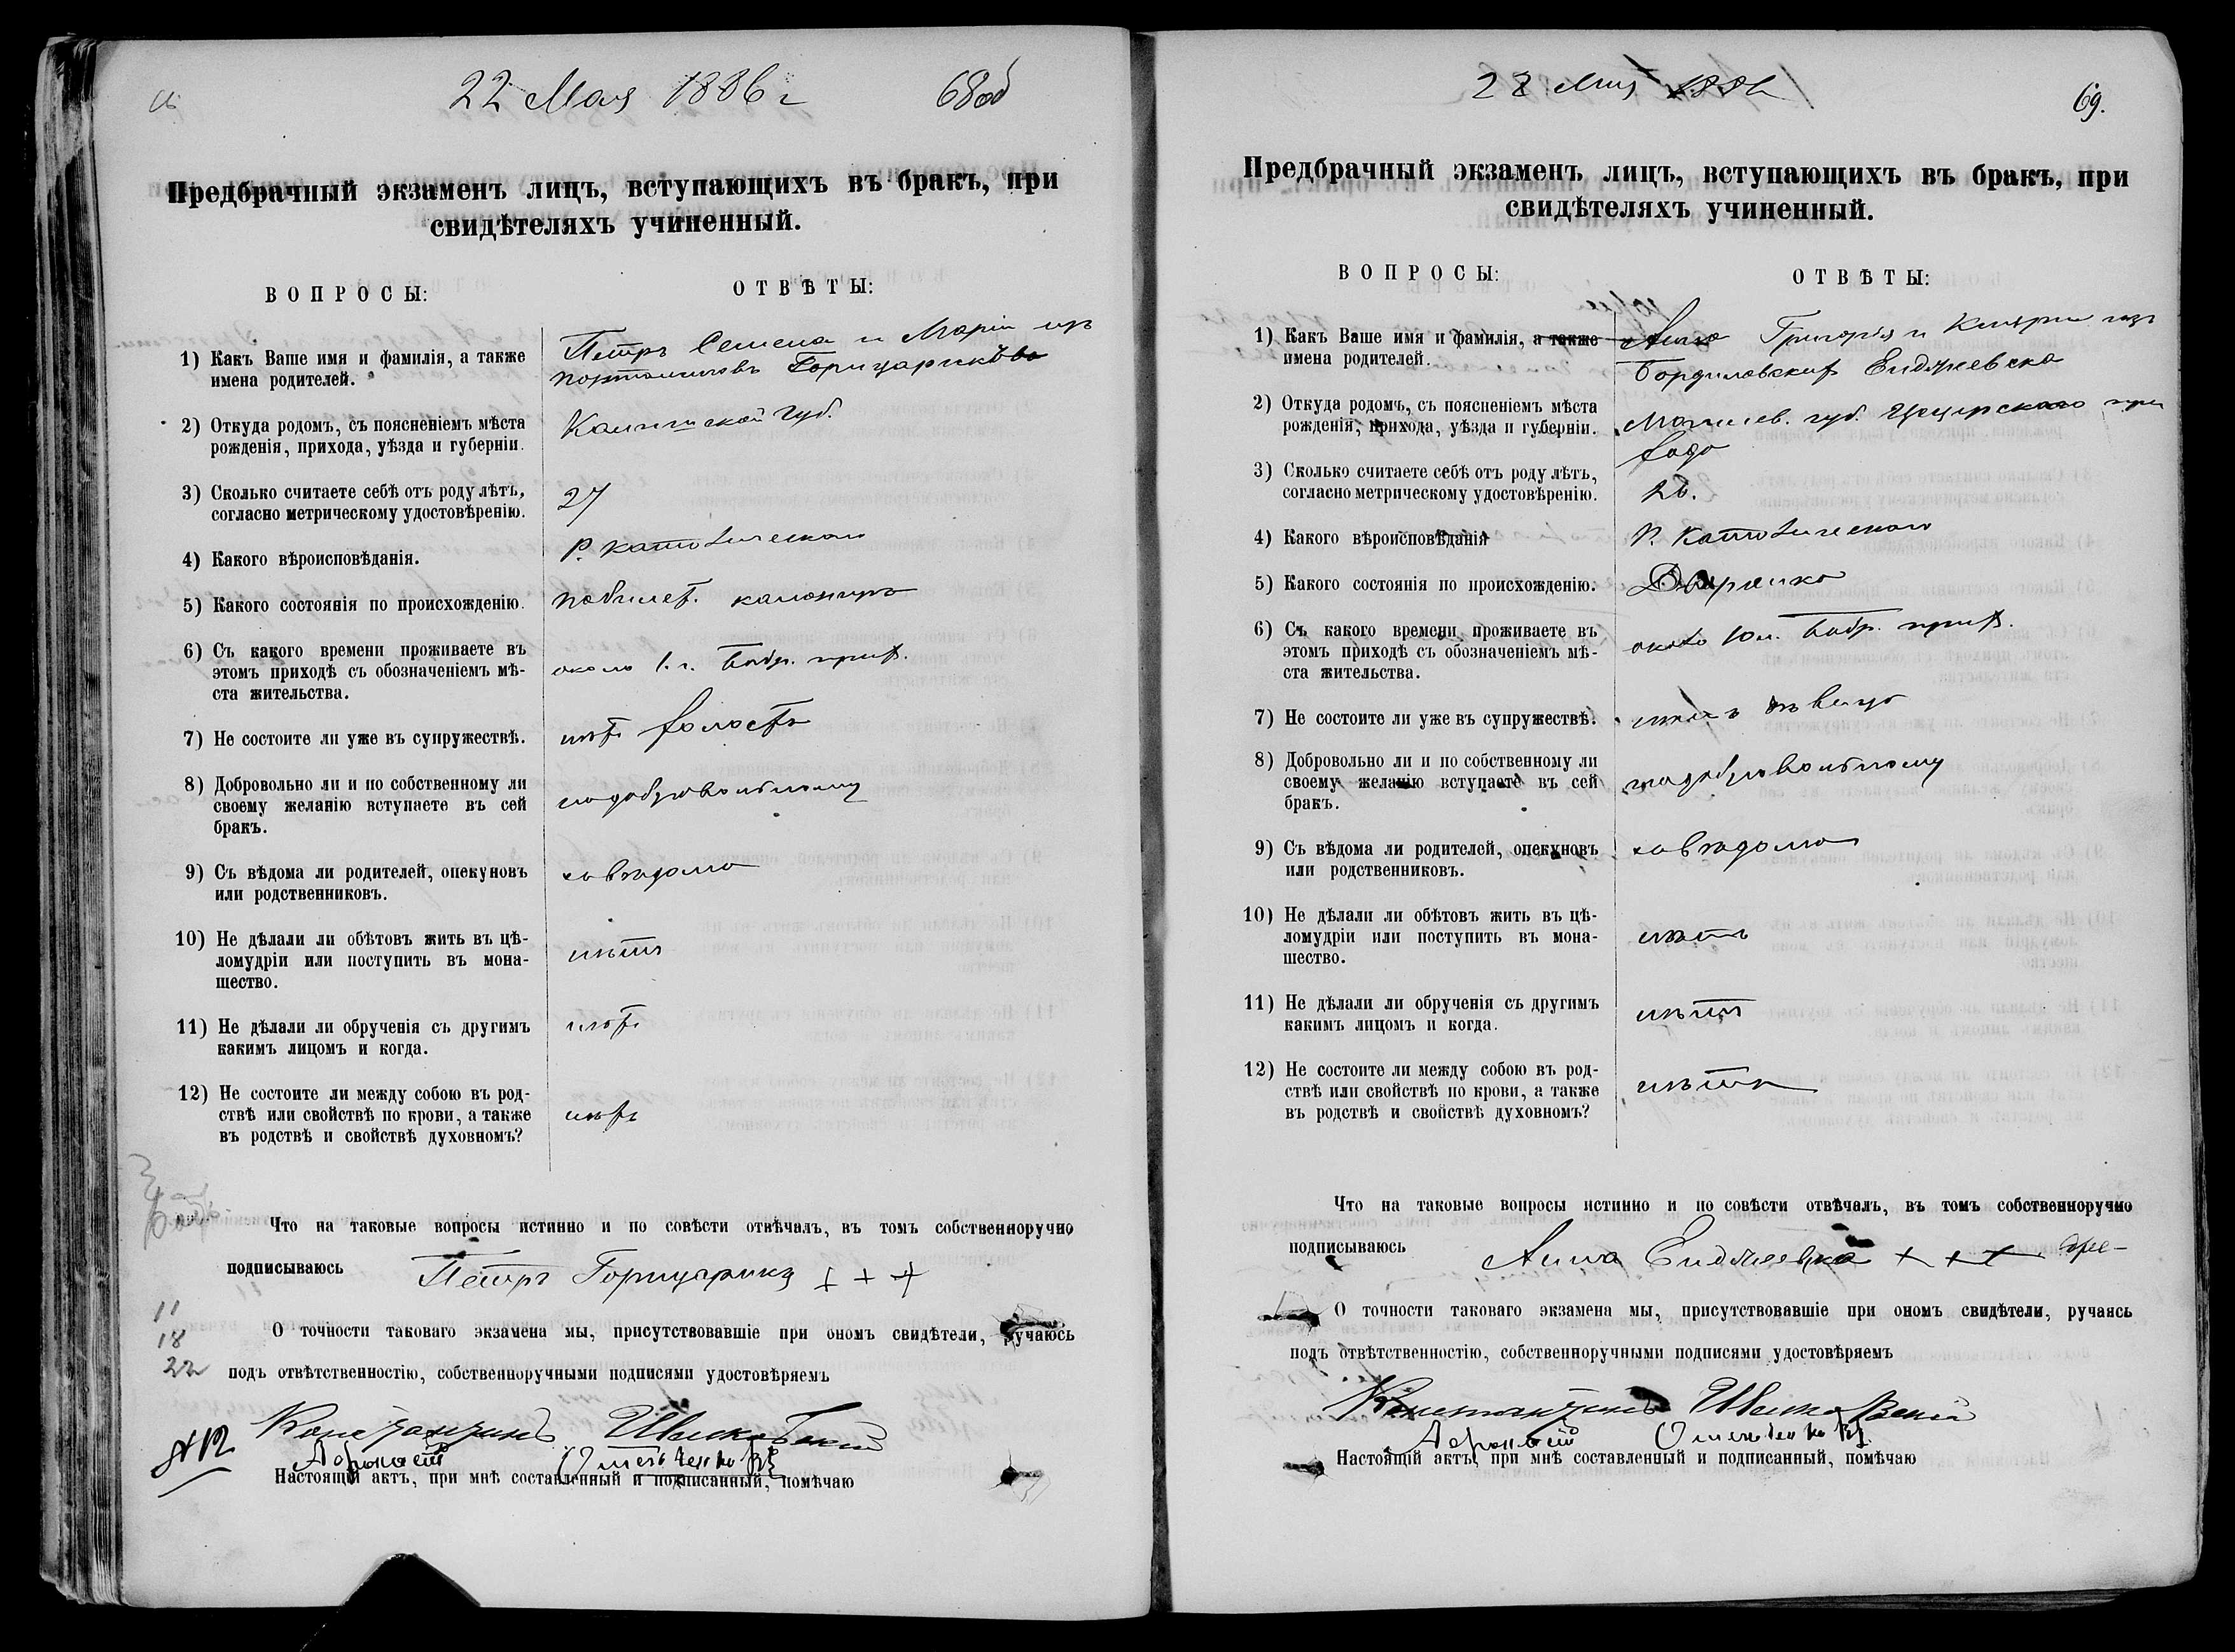 22 Мая 1886 г
68об
Предбрачный экзаменъ лицъ, вступающихъ въ бракъ, при
свидѣтеляхъ учиненный.
ВОПРОСЫ:
ОТВѢТЫ:
1) Какъ Ваше имя и фамилія, а также
имена родителей.
Петръ Семена и Маріи изъ
2) Откуда родомъ, съ поясненіемъ мѣста
рожденія, прихода, уѣзда и губерніи.
губ.
3) Сколько считаете себѣ отъ роду лѣтъ,
согласно метрическому удостовѣренію.
27
4) Какого вѣроисповѣданія.
Р. католическаго
5) Какого состоянія по происхожденію.
6) Съ какого времени проживаете въ
этомъ приходѣ съ обозначеніемъ мѣ-
ста жительства.
около 1. г. Бобр. прих.
7) Не состоите ли уже въ супружествѣ.
нѣтъ холостъ
8) Добровольно ли и по собственному ли
своему желанію вступаете въ сей
бракъ.
подобровольному
9) Съ вѣдома ли родителей, опекуновъ
или родственниковъ.
совѣдома
10) Не дѣлали ли обѣтовъ жить въ цѣ-
ломудріи или поступить въ мона-
шество.
нѣтъ
11) Не дѣлали ли обрученія съ другимъ
какимъ лицомъ и когда.
нѣтъ
12) Не состоите ли между собою въ род-
ствѣ или свойствѣ по крови, а также
въ родствѣ и свойствѣ духовномъ?
нѣтъ
Что на таковые вопросы истинно и по совѣсти отвѣчалъ, въ томъ собственноручно
подписываюсь Петръ + + +
11
18
22
О точности таковаго экзамена мы, присутствовавшіе при ономъ свидѣтели, ручаюсь
подъ отвѣтственностію, собственноручными подписями удостовѣряемъ
Константинъ
Настоящій актъ, при мнѣ составленный и подписанный, помѣчаю
69.
Предбрачный экзаменъ лицъ, вступающихъ въ бракъ, при
свидѣтеляхъ учиненный.
ВОПРОСЫ:
ОТВѢТЫ:
1) Какъ Ваше имя и фамилія, а также
имена родителей.
Анна Григорія и изъ
2) Откуда родомъ, съ поясненіемъ мѣста
рожденія, прихода, уѣзда и губерніи.
Могилев. губ. при
хода
3) Сколько считаете себѣ отъ роду лѣтъ,
согласно метрическому удостовѣренію.
4) Какого вѣроисповѣданія
Р. Католическаго
5) Какого состоянія по происхожденію.
Дворянка
6) Съ какого времени проживаете въ
этомъ приходѣ съ обозначеніемъ мѣ-
ста жительства.
около Бобр. прих.
7) Не состоите ли уже въ супружествѣ.
нѣтъ дѣвица
8) Добровольно ли и по собственному ли
своему желанію вступаете въ сей
бракъ.
подобровольному
9) Съ вѣдома ли родителей, опекуновъ
или родственниковъ.
совѣдома
10) Не дѣлали ли обѣтовъ жить въ цѣ-
ломудріи или поступить въ мона-
шество.
нѣтъ
11) Не дѣлали ли обрученія съ другимъ
какимъ лицомъ и когда.
нѣтъ
12) Не состоите ли между собою въ род-
ствѣ или свойствѣ по крови, а также
въ родствѣ и свойствѣ духовномъ?
нѣтъ
Что на таковые вопросы истинно и по совѣсти отвѣчалъ, въ томъ собственноручно
подписываюсь Анна + + +
О точности таковаго экзамена мы, присутствовавшіе при ономъ свидѣтели, ручаясь
подъ отвѣтственностію, собственноручными подписями удостовѣряемъ
Константинъ
Настоящій актъ, при мнѣ составленный и подписанный, помѣчаю